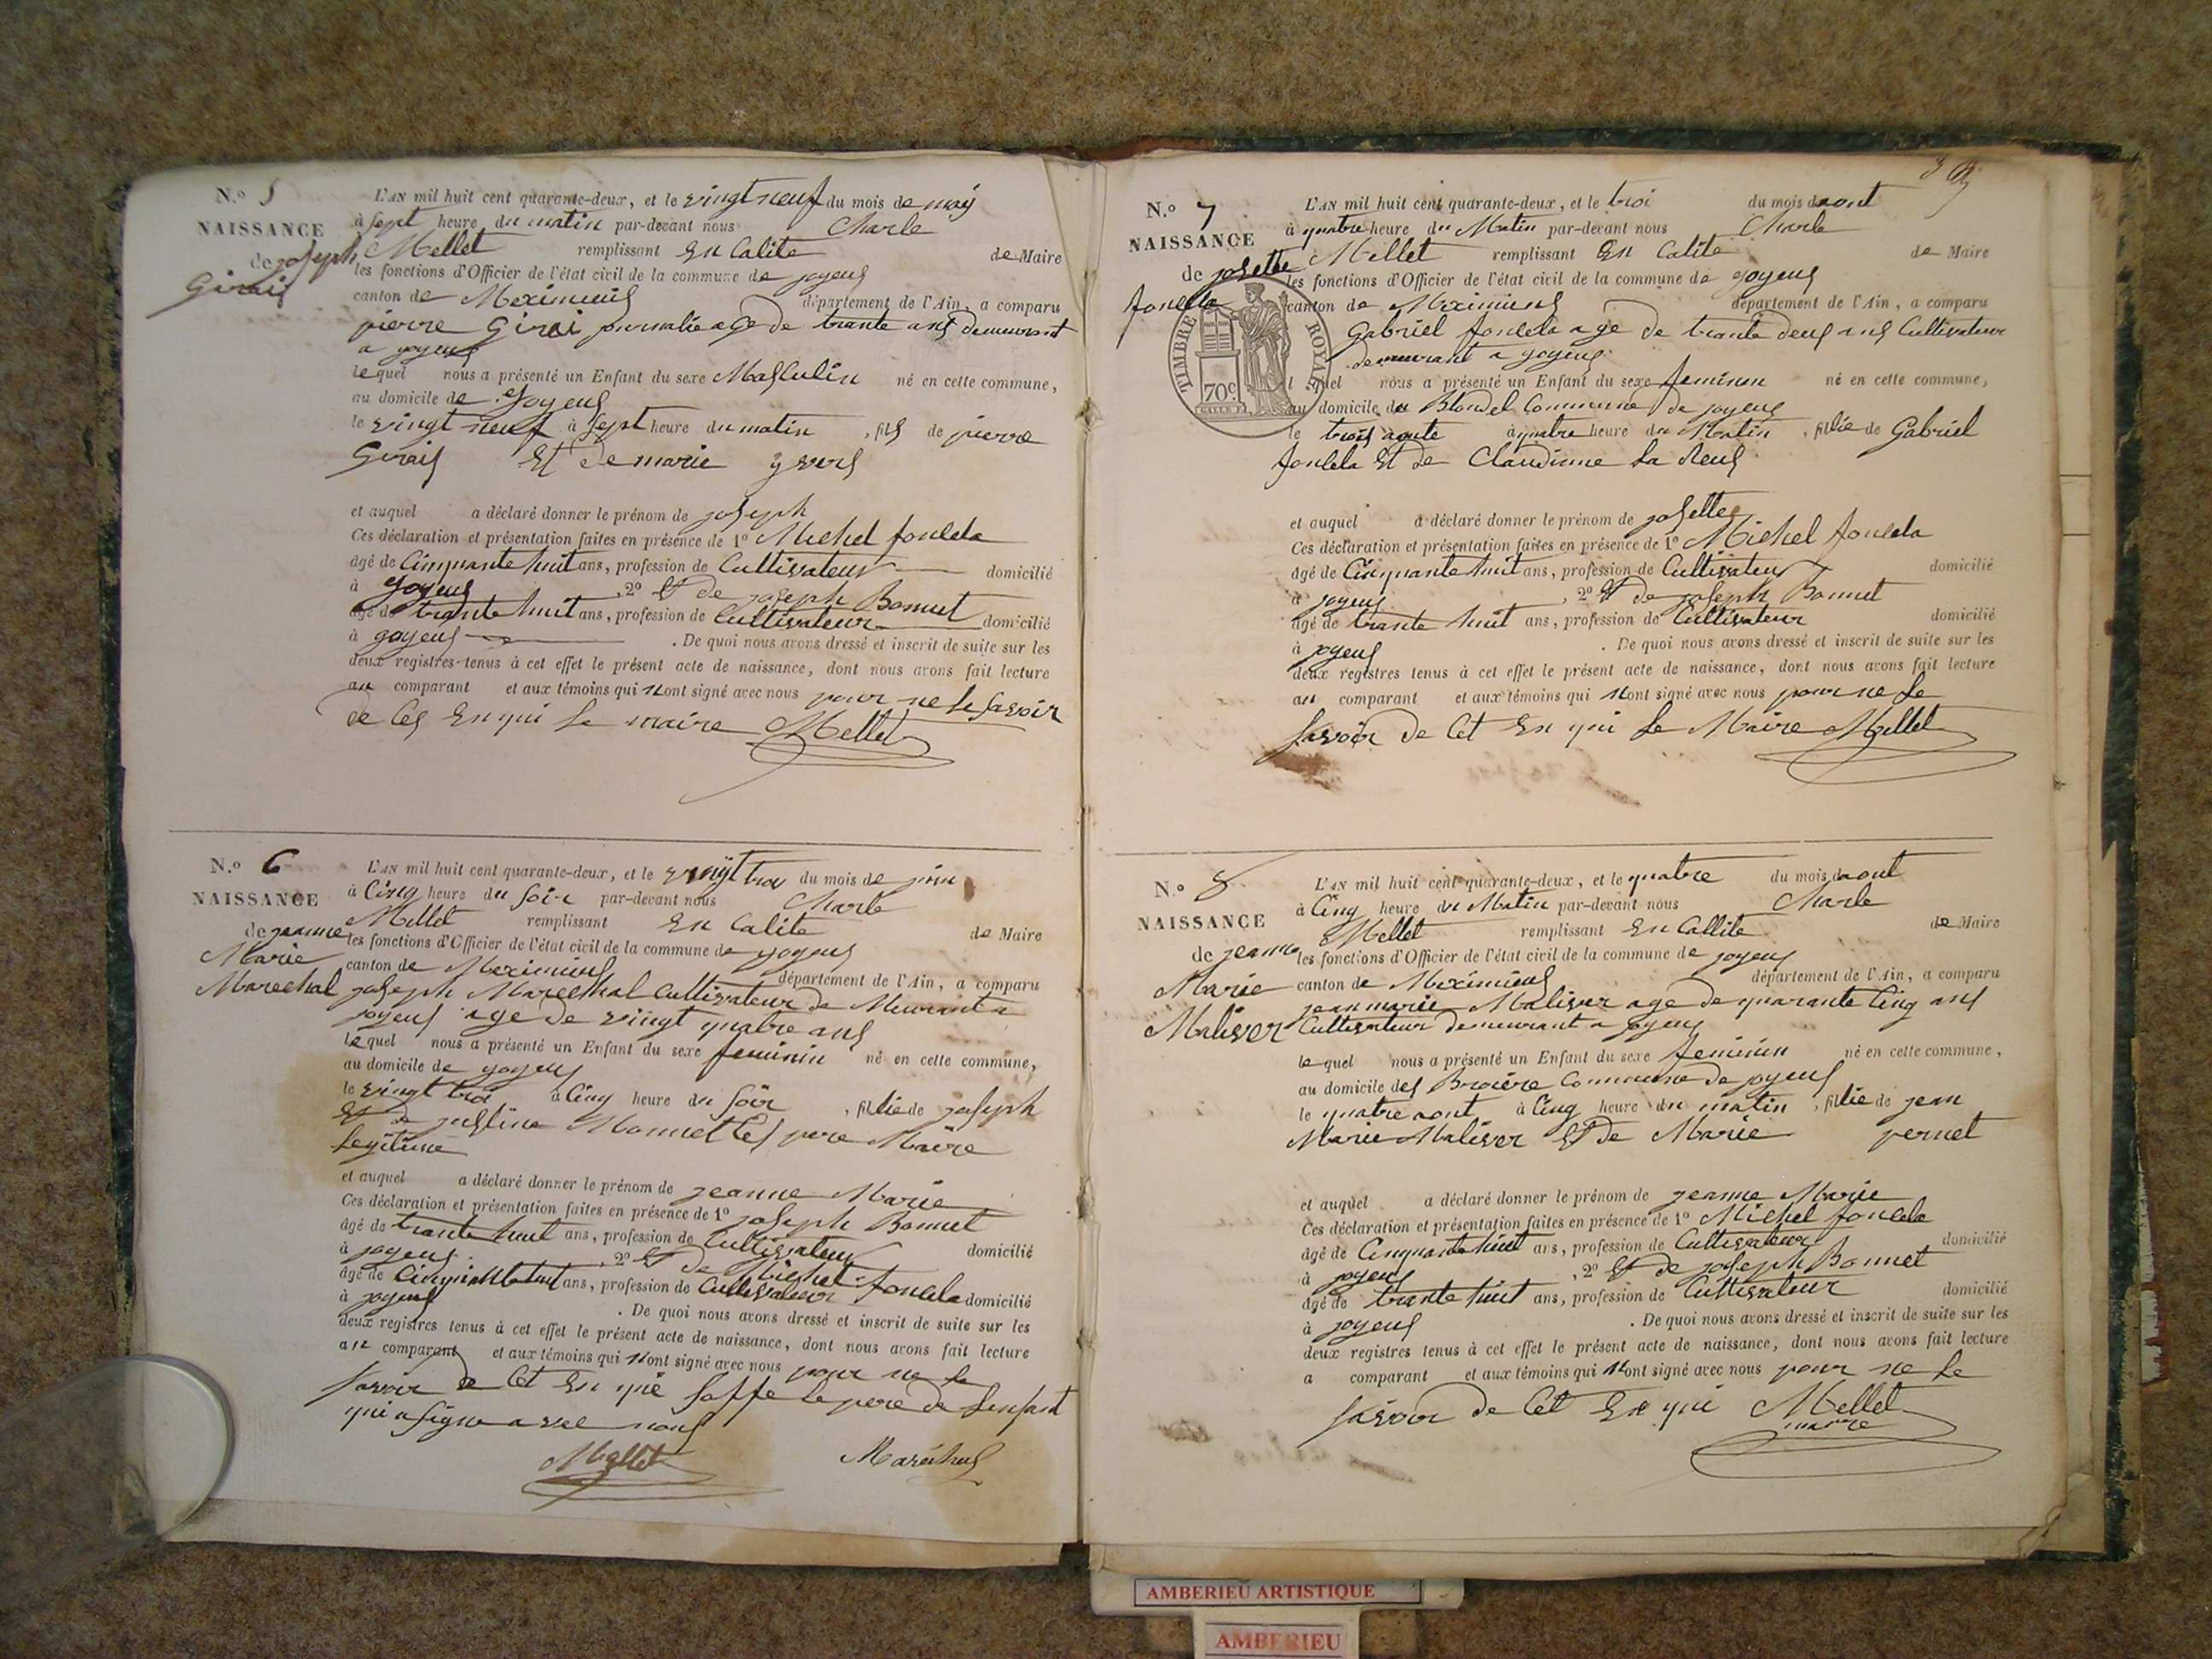 N.o 5
NAISSANCE
de joseph
Girais
L'AN mil huit cent quarante-deux, et le vingt neuf du mois de may
à sept heure du matin par-devant nous Charle
Mellet remplissant En Calite de Maire
les fonctions d'Officier de l'état civil de la commune de joyeus
canton de Meximieus département de l'Ain, a comparu
pierre Girai journalie age de trante ans demeurant
a joyeus
lequel nous a présenté un Enfant du sexe Masculin né en cette commune,
au domicile de joyeus
le vingt neuf à sept heure du matin, fils de pierre
Girais Et de marie
et auquel a déclaré donner le prénom de joseph
Ces déclaration et présentation faites en présence de 1o Michel foulela
âgé de Cinquante huit ans, profession de Cultivateur domicilié
à joyeus, 2o Et de joseph Bonnet
âgé de trante huit ans, profession de Cultivateur domicilié
à joyeus. De quoi nous avons dressé et inscrit de suite sur les
deux registres tenus à cet effet le présent acte de naissance, dont nous avons fait lecture
au comparant et aux témoins qui nont signé avec nous pour ne le savoir
de Ces En qui le maire Mellet
N.o 6
NAISSANCE
de jeanne
Marie
Marechal
L'AN mil huit cent quarante-deux, et le vingt troi du mois de juin
à Cinq heure du soir par-devant nous Charle
Mellet remplissant En Calite de Maire
les fonctions d'Officier de l'état civil de la commune de joyeus
canton de Meximieus département de l'Ain, a comparu
joseph Marechal Cultivateur de Meurant a
joyeus age de vingt quatre ans
lequel nous a présenté un Enfant du sexe feminin né en cette commune,
au domicile de joyeus
le vingt troi à Cinq heure du soir, fillie de joseph
Et de justine Monnet Les pere Maire
legitime
et auquel a déclaré donner le prénom de jeanne Marie
Ces déclaration et présentation faites en présence de 1o joseph Bonnet
âgé de trante huit ans, profession de Cultivateur domicilié
à joyeus, 2o Et de Michel foulela
âgé de Cinquante huit ans, profession de Cultivateur domicilié
à joyeus. De quoi nous avons dressé et inscrit de suite sur les
deux registres tenus à cet effet le présent acte de naissance, dont nous avons fait lecture
au comparant et aux témoins qui nont signé avec nous pour ne le
savoir de Cet En qui saffe le pere de lenfant
qui a signe avec nous
Mellet Maréchal
N.o 7
NAISSANCE
de josette
foulela
TIMBRE ROYAL
70c.
L'AN mil huit cent quarante-deux, et le troi du mois daout
à quatre heure du Matin par-devant nous Charle
Mellet remplissant En Calite de Maire
les fonctions d'Officier de l'état civil de la commune de joyeus
canton de Meximieus département de l'Ain, a comparu
Gabriel foulela age de trante deus ans Cultivateur
demeurant a joyeus
lequel nous a présenté un Enfant du sexe feminin né en cette commune,
au domicile du Blondel Commune de joyeus
le trois aoute à quatre heure du Matin, fillie de Gabriel
foulela Et de Claudinne La
et auquel a déclaré donner le prénom de josette
Ces déclaration et présentation faites en présence de 1o Michel foulela
âgé de Cinquante huit ans, profession de Cultivateur domicilié
à joyeus, 2o Et de joseph Bonnet
âgé de trante huit ans, profession de Cultivateur domicilié
à joyeus. De quoi nous avons dressé et inscrit de suite sur les
deux registres tenus à cet effet le présent acte de naissance, dont nous avons fait lecture
au comparant et aux témoins qui nont signé avec nous pour ne le
savoir de Cet En qui le Maire Mellet
N.o 8
NAISSANCE
de jeanne
Marie
Maliver
L'AN mil huit cent quarante-deux, et le quatre du mois daout
à Cinq heure du Matin par-devant nous Charle
Mellet remplissant En Callite de Maire
les fonctions d'Officier de l'état civil de la commune de joyeus
canton de Meximieus département de l'Ain, a comparu
jean marie Maliver age de quarante Cinq ans
Cultivateur demeurant a joyeus
lequel nous a présenté un Enfant du sexe feminin né en cette commune,
au domicile des Broière Commune de joyeus
le quatre aout à Cinq heure du matin, fillie de jean
Marie Maliver Et de Marie pernet
et auquel a déclaré donner le prénom de jeanne Marie
Ces déclaration et présentation faites en présence de 1o Michel foulela
âgé de Cinquante huit ans, profession de Cultivateur domicilié
à joyeus, 2o Et de joseph Bonnet
âgé de trante huit ans, profession de Cultivateur domicilié
à joyeus. De quoi nous avons dressé et inscrit de suite sur les
deux registres tenus à cet effet le présent acte de naissance, dont nous avons fait lecture
a comparant et aux témoins qui nont signé avec nous pour ne le
savoir de Cet En qui Mellet
maire
AMBERIEU ARTISTIQUE
AMBERIEU